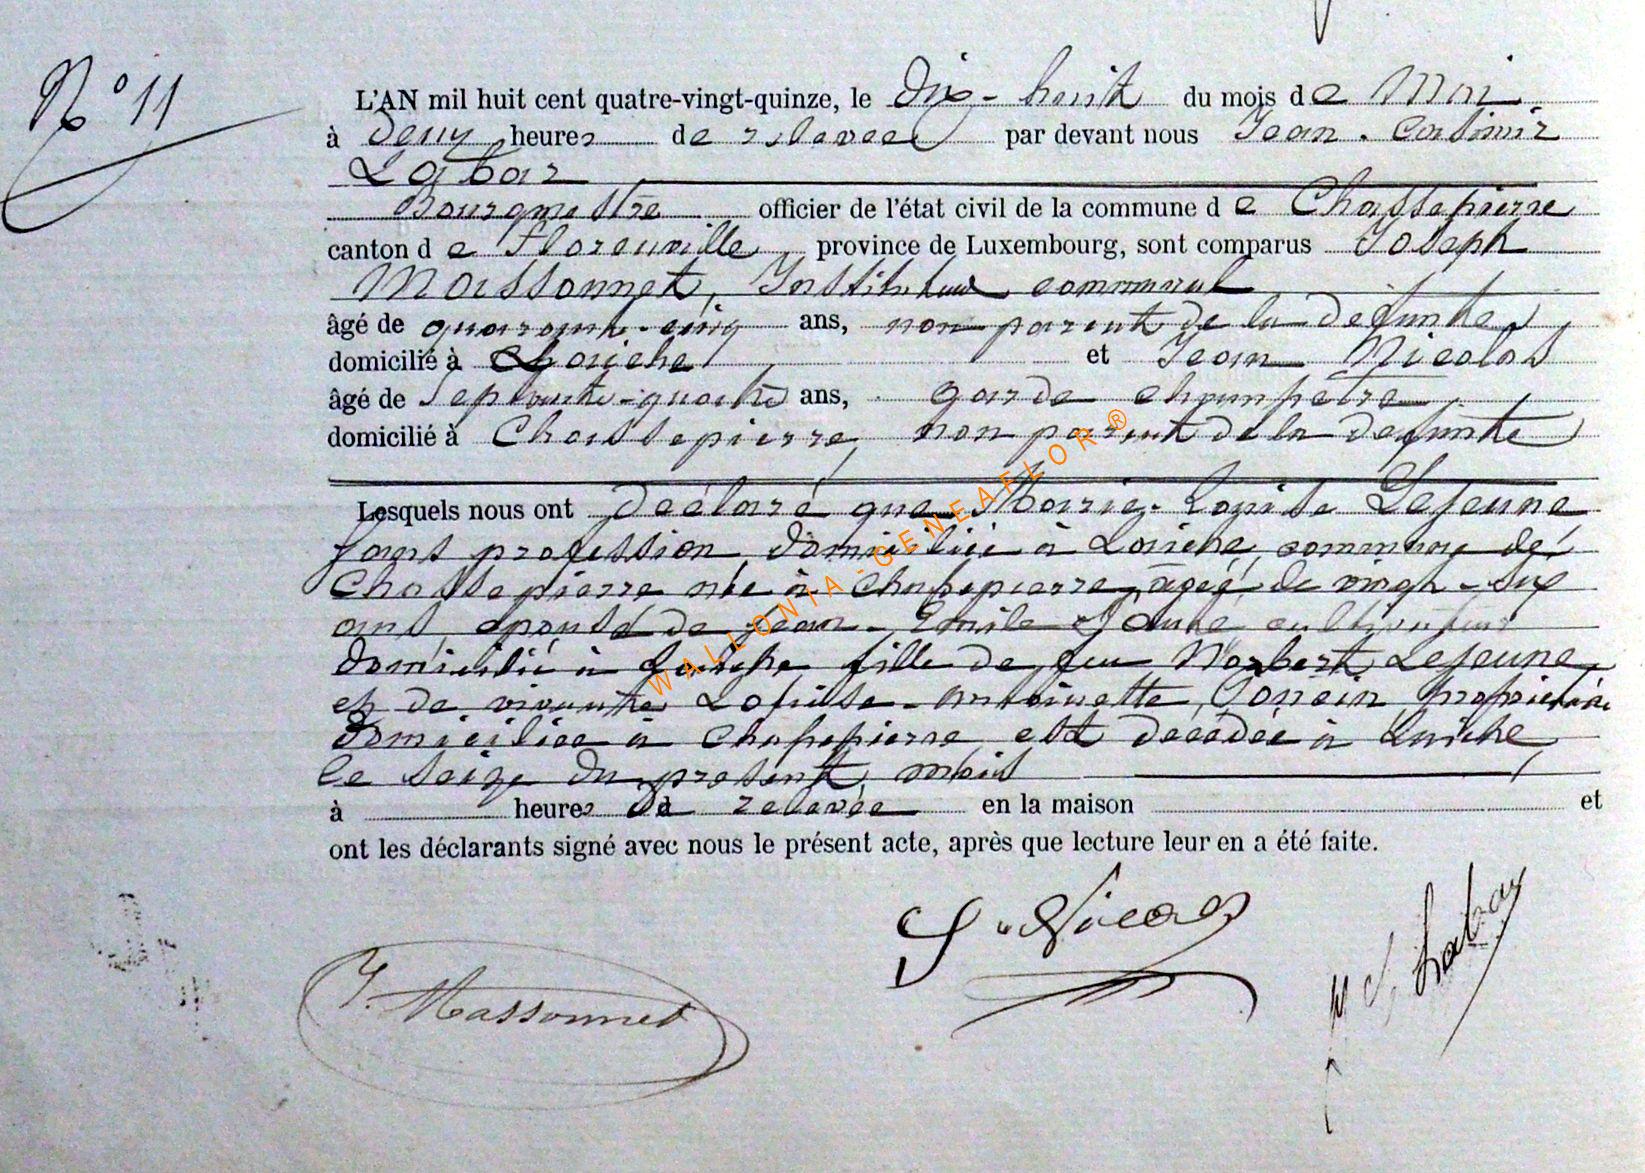 N° 11
L'AN mil huit cent quatre-vingt-quinze, le Dix-huit du mois de Mai
à deux heures de relevée par devant nous Jean-Casimir
Labar
Bourgmestre officier de l'état civil de la commune de Chassepierre
canton de Florenville province de Luxembourg, sont comparus Joseph
Massonnet, Instituteur communal
âgé de quarante-cinq ans, non parent de la défunte
domicilié à Laiche et Jean Nicolas
âgé de Septante-quatre ans, garde champêtre
domicilié à Chassepierre, non parent de la défunte
Lesquels nous ont déclaré que Marie-Louise Lejeune
sans profession, domiciliée à Laiche, commune de
Chassepierre née à Chassepierre, âgée de vingt-six
ans, épouse de Jean-Emile cultivateur
domicilié à Laiche fille de feu Norbert Lejeune
et de vivante Louise-Antoinette propriétaire
domiciliée à Chassepierre, est décédée à Laiche
le seize du présent mois
à heures de relevée en la maison et
ont les déclarants signé avec nous le présent acte, après que lecture leur en a été faite.
J. Nicolas
J. Massonnet
WALLONIA-GENEAFLOR®